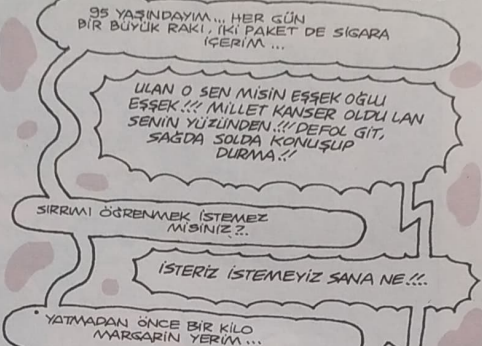 95 YAŞINDAYIM... HER GÜN
BİR BÜYÜK RAKI, İKİ PAKET DE SİGARA
İÇERİM...
ULAN O SEN MİSİN EŞŞEK OĞLU
EŞŞEK!!! MİLLET KANSER OLDU LAN
SENİN YÜZÜNDEN!!! DEFOL GİT,
SAĞDA SOLDA KONUŞUP
DURMA!!
SIRRIMI ÖĞRENMEK İSTEMEZ
MİSİNİZ?..
İSTERİZ İSTEMEYİZ SANA NE!!..
YATMADAN ÖNCE BİR KİLO
MARGARİN YERİM...